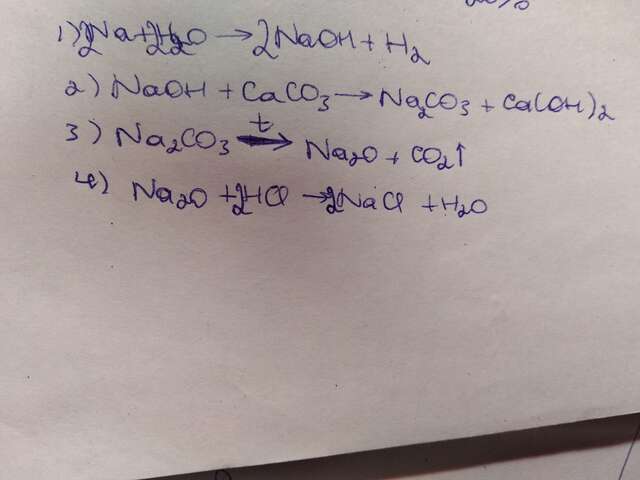 1) 2Na + 2H₂O → 2NaOH + H₂
2) NaOH + CaCO₃ → Na₂CO₃ + Ca(OH)₂
3) Na₂CO₃ t→ Na₂O + CO₂↑
4) Na₂O + 2HCl → 2NaCl + H₂O